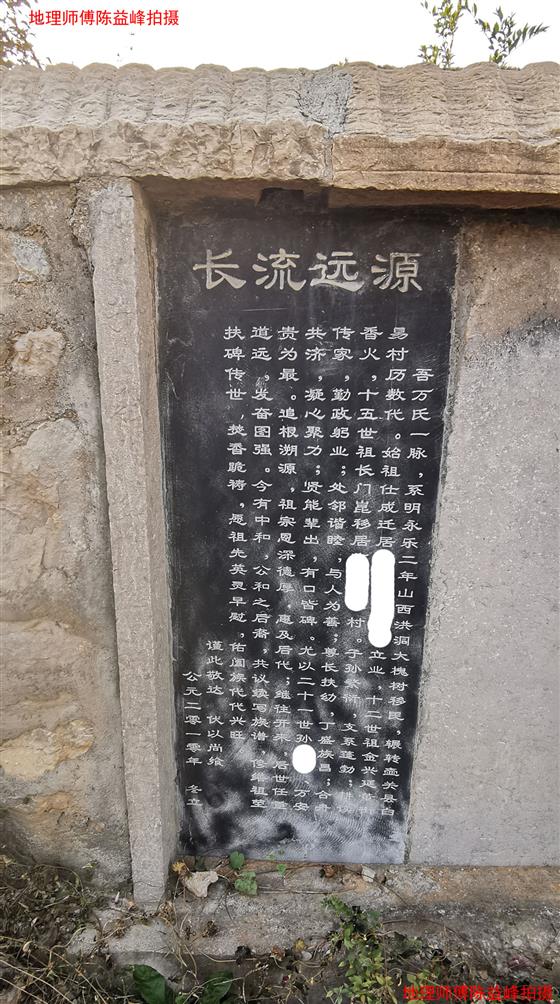 地理师傅陈益峰拍摄
源远流长
吾万氏一脉，系明永乐二年山西洪洞大槐树移民，辗转壶关县白
易村历数代。始祖仕成迁居 立业，十二世祖金兴延
香火，十五世祖长门崑移居 村。子孙繁衍，支系蓬勃；
传家，勤政躬业；处邻谐睦，与人为善；尊长扶幼，丁盛族昌；合
共济，凝心聚力；贤能辈出，有口皆碑。尤以二十一世孙 、万安
贵为最。追根溯源，祖宗恩深德厚，惠及后代；继往开来，后世任重
道远，发奋图强。今有中和，公和之后裔，共议续写族谱，修缮祖茔
扶碑传世，焚香跪祷，愿祖先英灵早慰，佑阖族代代兴旺
谨此敬达 伏以尚飨
公元二零一零年 冬立
地理师傅陈益峰拍摄